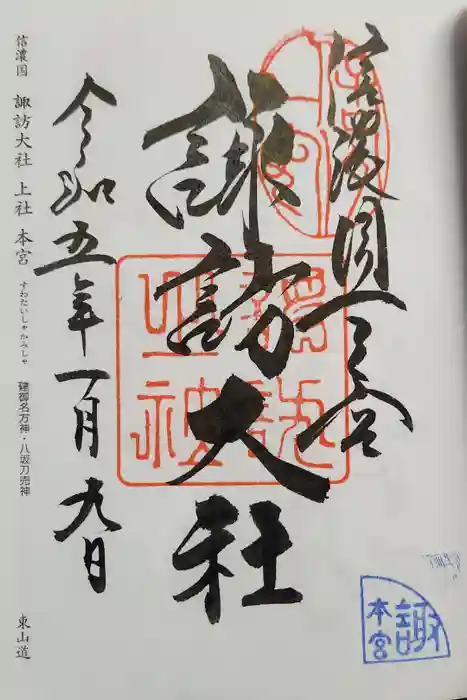 信濃國一之宮
諏訪大社
令和五年一月九日
信濃国 諏訪大社 上社 本宮 すわたいしゃかみしゃ 建御名方神・八坂刀売神 東山道
諏
本宮